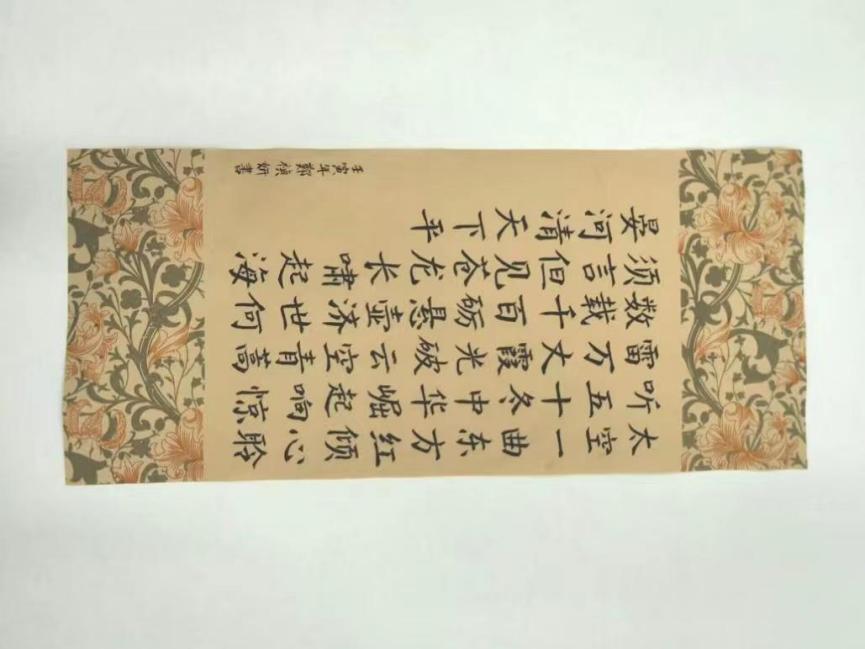 太空一曲东方红倾心聆
听五十冬中华崛起响惊
雷万丈霞光破云空青蒿
数载千百砺悬壶济世何
须言但见苍龙长啸起海
晏河清天下平
壬寅年鄭桢妍書